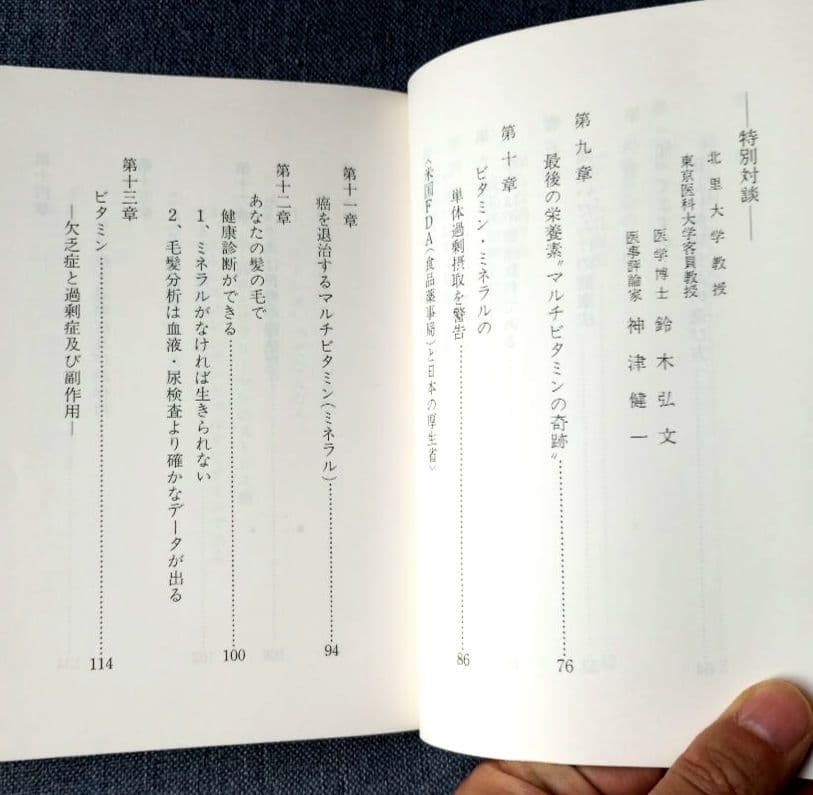 ―特別対談―
北里大学教授
東京医科大学客員教授
医学博士 鈴木弘文
医事評論家 神津健一
第九章
最後の栄養素“マルチビタミンの奇跡”……76
第十章
ビタミン・ミネラルの
単体過剰摂取を警告……86
〈米国FDA（食品薬事局）と日本の厚生省〉
第十一章
癌を退治するマルチビタミン（ミネラル）……94
第十二章
あなたの髪の毛で
健康診断ができる……100
1、ミネラルがなければ生きられない
2、毛髪分析は血液・尿検査より確かなデータが出る
第十三章
ビタミン……114
―欠乏症と過剰症及び副作用―